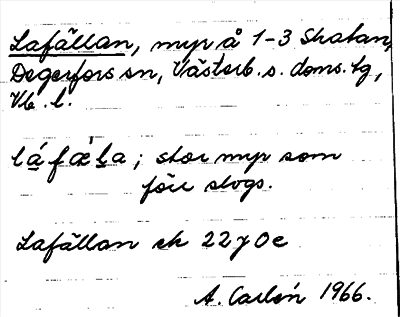 Lafällan, myr å 1-3 Skatan,
Degerfors sn, Västerb. s. doms. lg,
Vb. l.
láfæ̀ḷa; stor myr som
förr slogs.
Lafällan ek 22 J 0 e
A. Carlén 1966.